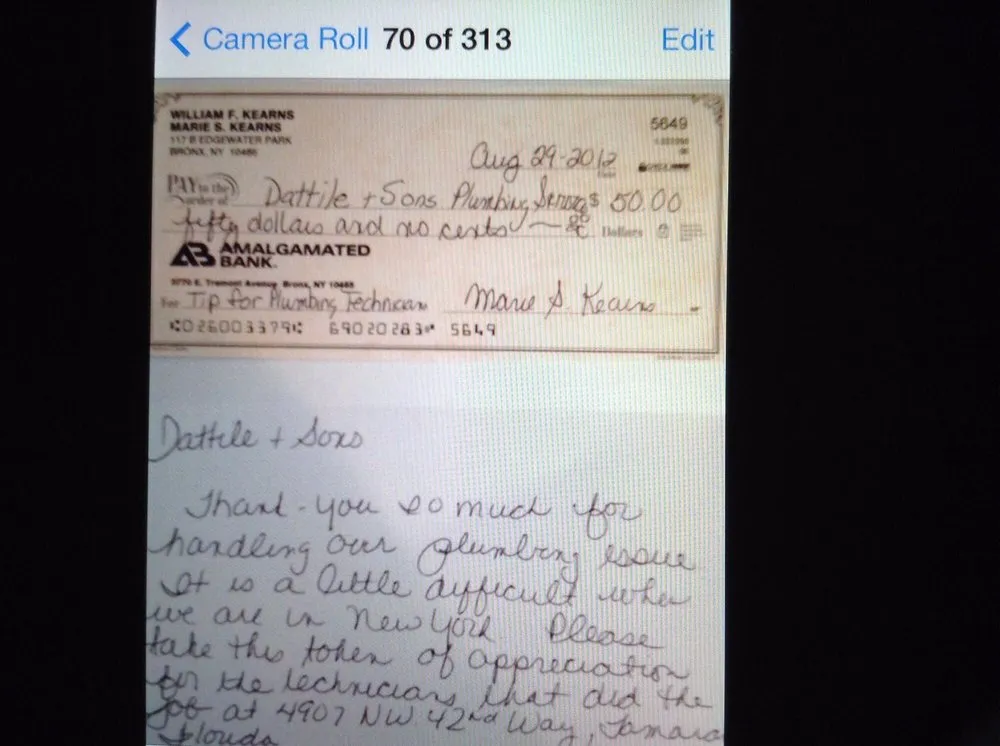 Camera Roll 70 of 313 Edit
WILLIAM F. KEARNS
MARIE S. KEARNS
117 B EDGEWATER PARK
BRONX, NY 10465
5649
Aug 29-2012
Date
PAY to the order of Dattile + Sons Plumbing $ 50.00
fifty dollars and no cents — Dollars
AMALGAMATED
BANK.
E. Tremont Avenue Bronx, NY 10465
For Tip for Plumbing Technician Marie S. Kearns
⑆026003379⑆ 69020283⑈ 5649
Dattile + Sons
Thank-you so much for
handling our plumbing issue
It is a little difficult when
we are in New York Please
take this token of appreciation
for the technicians that did the
job at 4907 NW 42nd Way, Tamarac
Florida